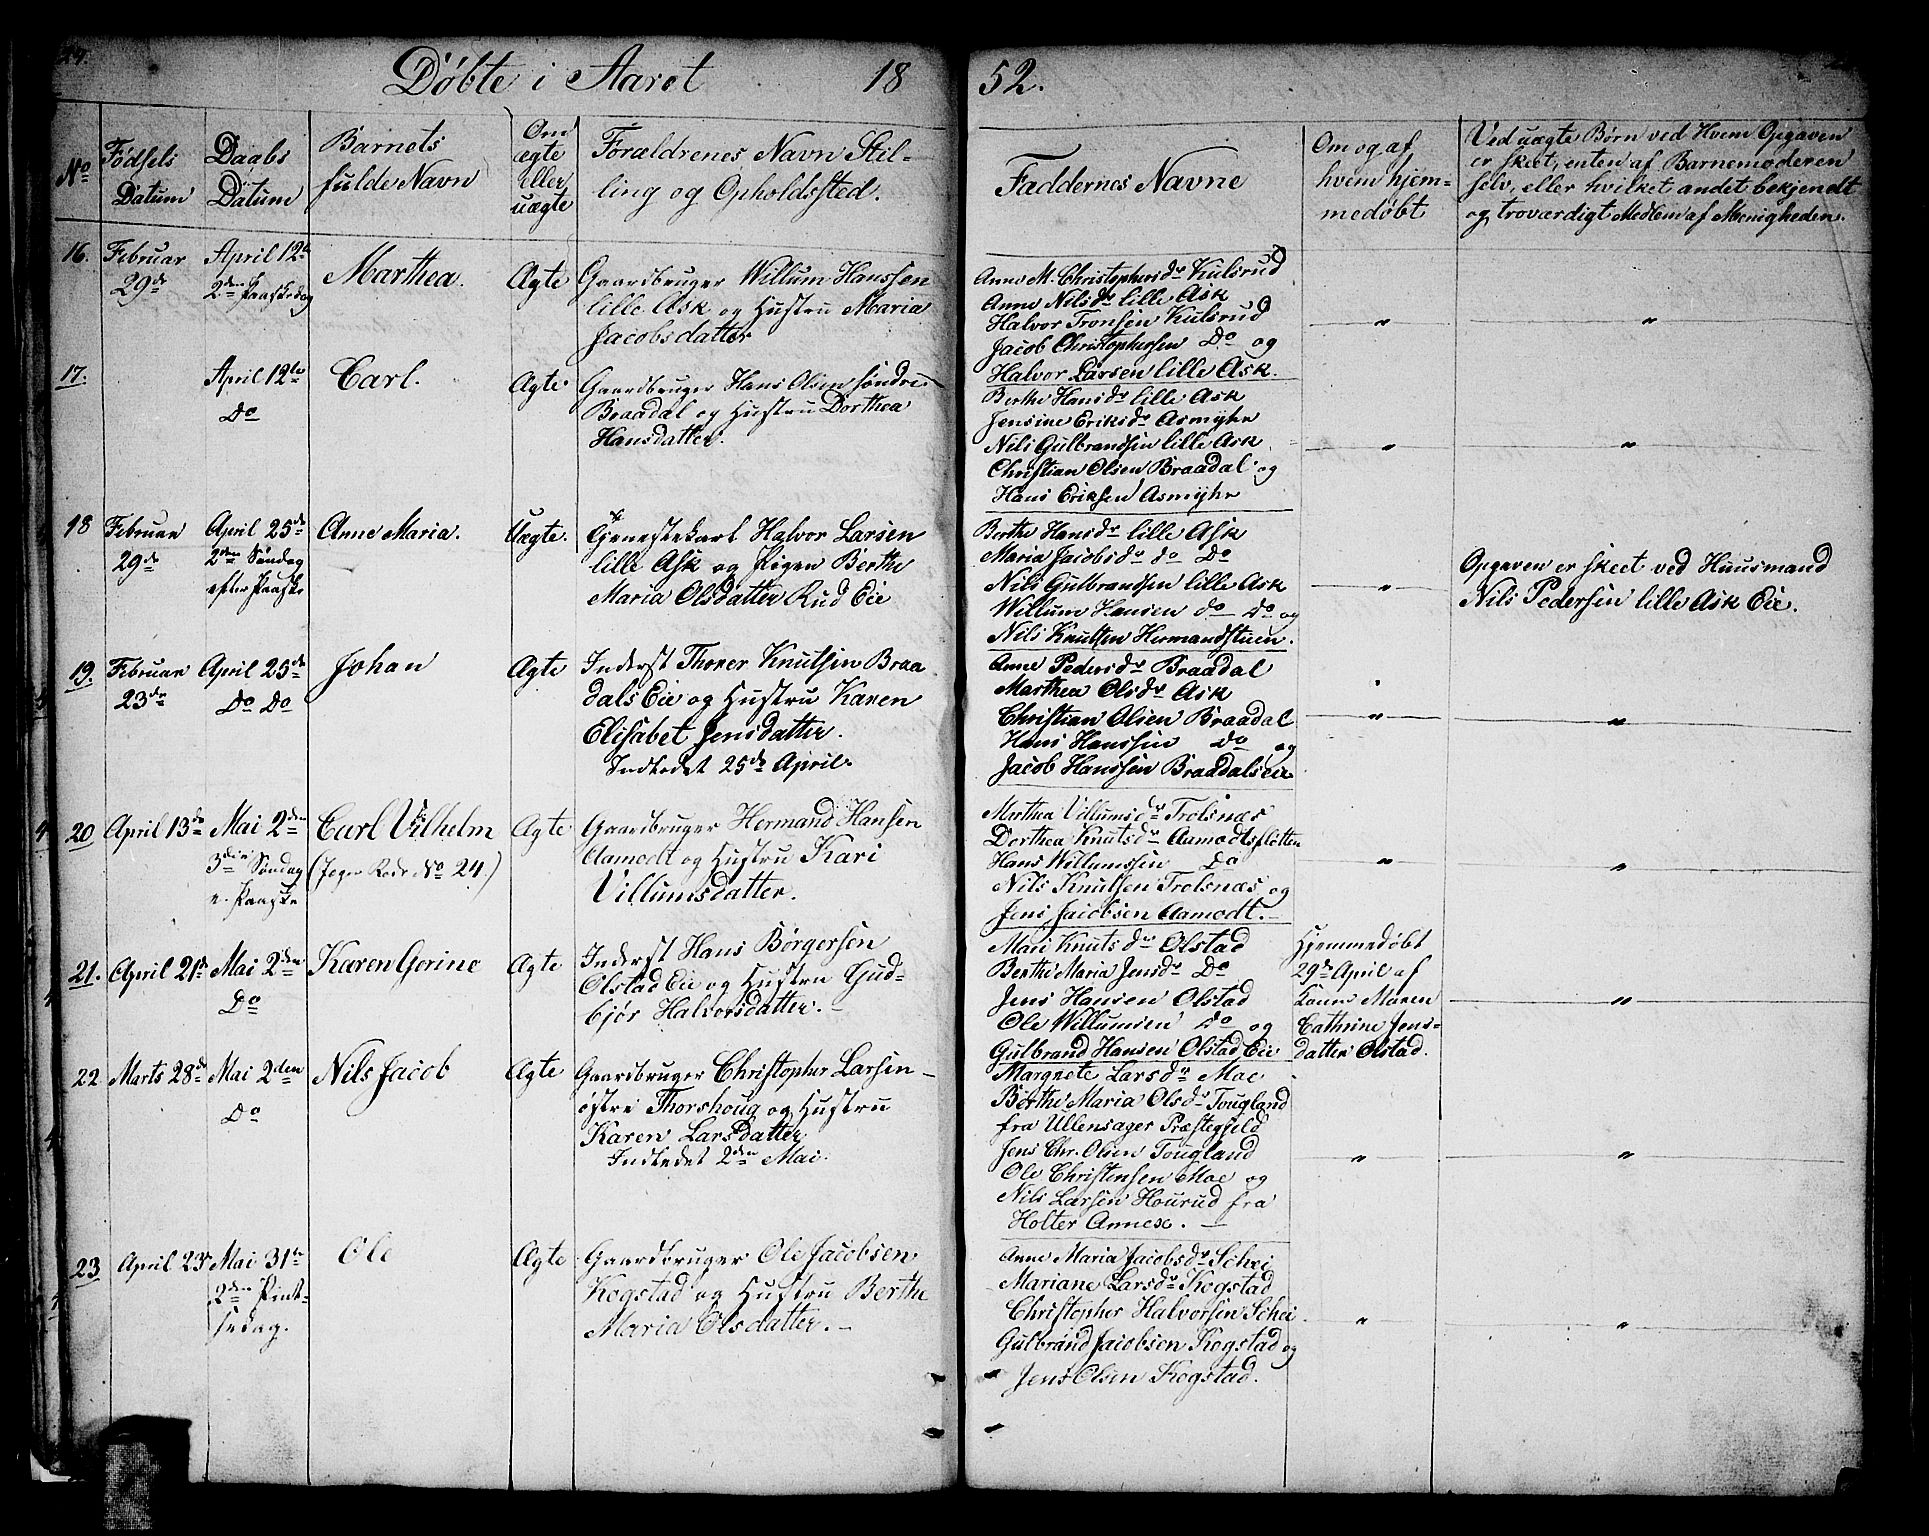 24.
Döbte i Aaret 1852.
No
Fødsels Datum
Daabs Datum
Barnets fulde Navn
Om ægte eller uægte
Forældrenes Navn Stil-
ling og Opholdssted.
Faddernes Navne
Om og af
hvem hjem-
medøbt
Ved uægte Børn ved Hvem Opgaven
er skeet, enten af Barnemoderen
selv, eller hvilket andet bekjendt
og troværdigt Medlem af Menigheden.
16. Februar 29de
April 12te
2den Paaskedag
Marthea.
Ægte
Gaardbruger Willum Hanssen
lille Ask og Hustru Maria
Jacobsdatter
Anne M. Christophersdr Kulsrud
Anne Nilsdr lille Ask
Halvor Tronsen Kulsrud
Jacob Christophersen Do og
Halvor Larsen lille Ask.
" "
17.
April 12te
Do
Carl.
Ægte.
Gaardbruger Hans Olsen søndre
Braadal og Hustru Dorthea
Hansdatter.
Berthe Hansdr lille Ask
Jensine Eriksdr Asmyhr
Nils Gulbrandsen lille Ask
Christian Olsen Braadal og
Hans Eriksen Asmyhr
" "
18 Februar 29de
April 25de
2den Søndag
efter Paaske
Anne Maria.
Uægte.
Tjenestekarl Halvor Larsen
lille Ask og Pigen Berthe
Maria Olsdatter Rud Eie
Berthe Hansdr lille Ask
Maria Jacobsdr do Do
Nils Gulbrandsen lille Ask
Willum Hansen do Do og
Nils Knutsen Hermandstuen.
"
Opgaven er skeet ved Huusmand
Nils Pedersen lille Ask Eie.
19. Februar 23de
April 25de
Do Do
Johan
Ægte
Inderst Thorer Knutsen Braa
dals Eie og Hustru Karen
Elisabet Jensdatter.
Indledet 25de April.
Anne Pedersdr Braadal
Marthea Olsdr Ask
Christian Olsen Braadal
Hans Hanssen Do og
Jacob Hanssen Braadalseie
" "
20 April 13de
Mai 2den
3die Søndag
e. Paaske
Carl Vilhelm
(Jeger Rode No 24.)
Ægte
Gaardbruger Hermand Hansen
Aamodt og Hustru Kari
Villumsdatter.
Marthea Villumsdr Trolsnæs
Dorthea Knutsdr Aamodtsfløtten
Hans Willumssen Do
Nils Knutsen Trolsnæs og
Jens Jacobsen Aamodt.
" "
21. April 21de
Mai 2den
Do
Karen Gorine
Ægte
Inderst Hans Börgersen
Olstad Eie og Hustru Gud-
björ Halvorsdatter.
Mari Knutsdr Olstad
Berthe Maria Jensdr Do
Jens Hansen Olstad
Ole Willumsen Do og
Gulbrand Hansen Olstad Eie
Hjemmedøbt
29de April af
Konne Maren
Cathrine Jens-
datter Olstad.
"
22 Marts 28de
Mai 2den
Do
Nils Jacob
Ægte
Gaardbruger Christopher Larsen
østre Thorshoug og Hustru
Karen Larsdatter
Indledet 2den Mai.
Margrete Larsdr Moe
Berthe Maria Olsdr Tougland
fra Ullensager Præstegjeld
Jens Chr. Olsen Tougland
Ole Christensen Moe og
Nils Larsen Hourud fra
Holter Annex.
" "
23 April 23de
Mai 31te
2den Pint-
sedag.
Ole
Ægte
Gaardbruger Ole Jacobsen
Kogstad og Hustru Berthe
Maria Olsdatter.
Anne Maria Jacobsdr Schei
Mariane Larsdr Kogstad
Christopher Halvorsen Schei
Gulbrand Jacobsen Kogstad og
Jens Olsen Kogstad.
" "